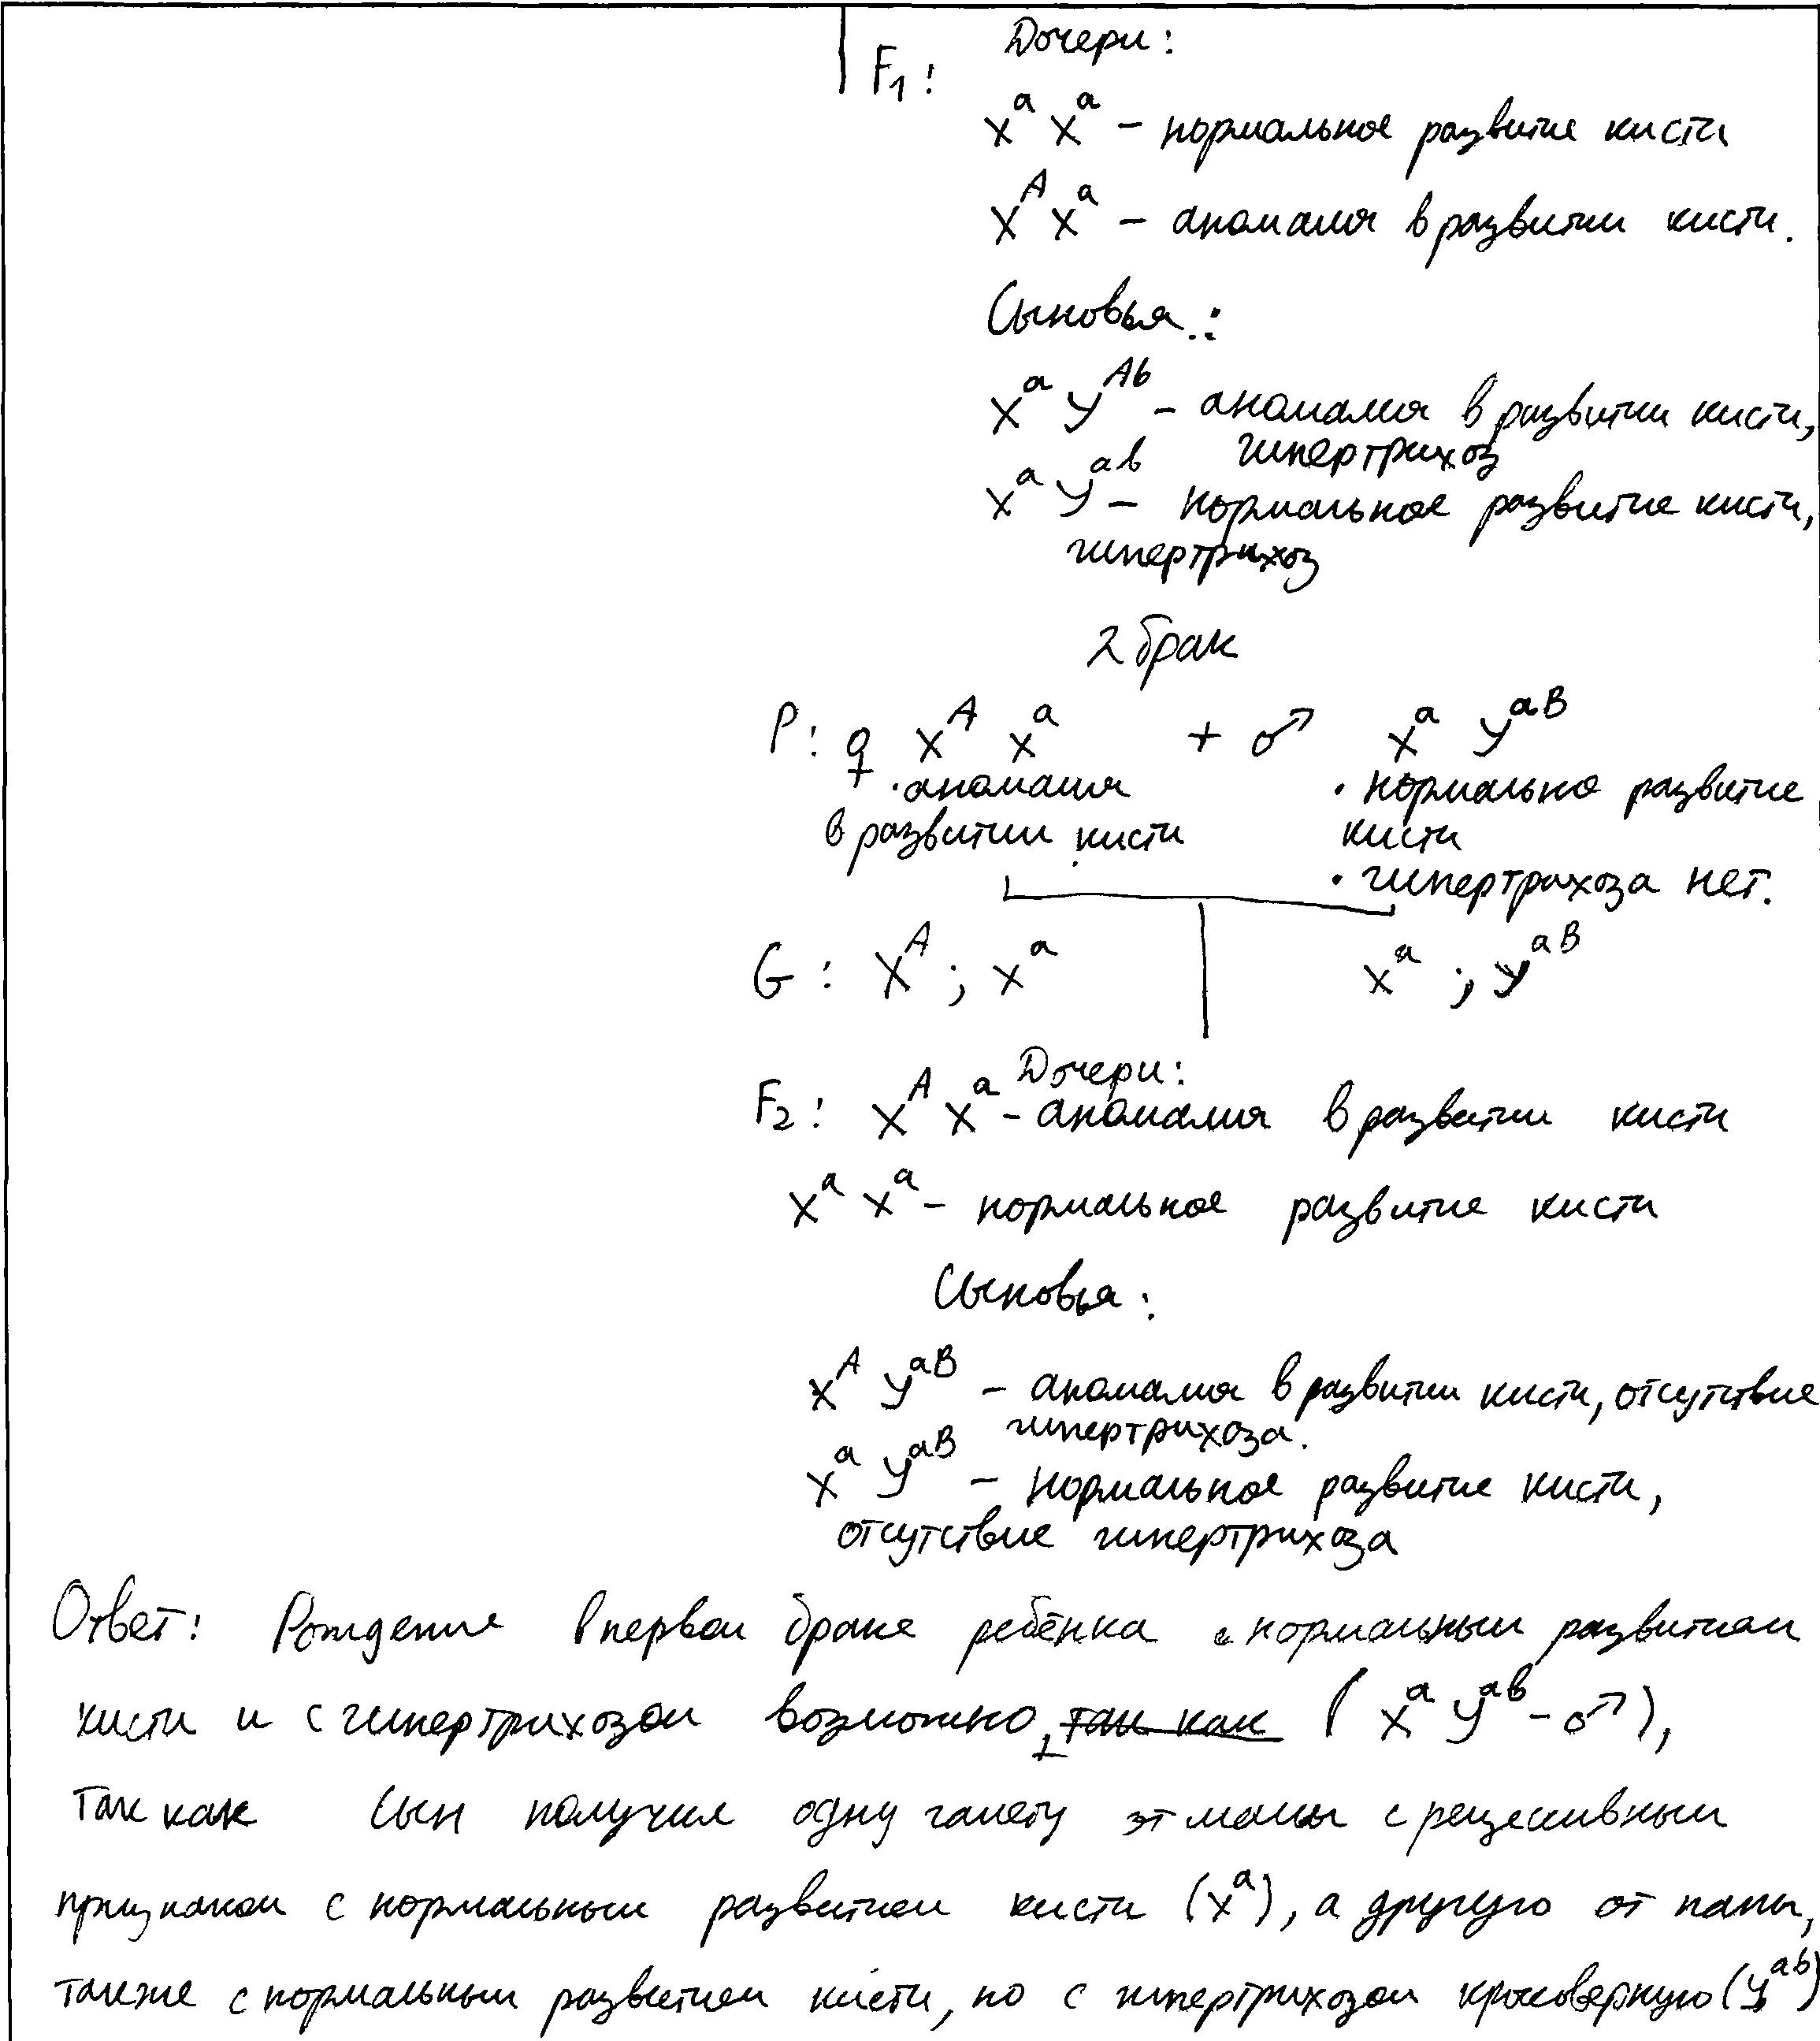 Дочери:
F₁:
xᵃ xᵃ – нормальное развитие кисти
xᴬ xᵃ – аномалия в развитии кисти.
Сыновья:
xᵃ yᴬᵇ – аномалия в развитии кисти,
гипертрихоз
xᵃ yᵃᵇ – нормальное развитие кисти,
гипертрихоз
2 брак
P: ♀ xᴬ xᵃ + ♂ xᵃ yᵃᴮ
· аномалия · нормально развитие
в развитии кисти кисти
· гипертрихоза нет.
G: xᴬ; xᵃ xᵃ; yᵃᴮ
Дочери:
F₂: xᴬ xᵃ – аномалия в развитии кисти
xᵃ xᵃ – нормальное развитие кисти
Сыновья:
xᴬ yᵃᴮ – аномалия в развитии кисти, отсутствие
гипертрихоза.
xᵃ yᵃᴮ – нормальное развитие кисти,
отсутствие гипертрихоза
Ответ: Рождение в первом браке ребёнка с нормальным развитием
кисти и с гипертрихозом возможно, так как (xᵃ yᵃᵇ - ♂),
так как сын получил одну гамету от мамы с рецессивным
признаком с нормальным развитием кисти (xᵃ), а другую от папы,
также с нормальным развитием кисти, но с гипертрихозом кроссоверную (yᵃᵇ)